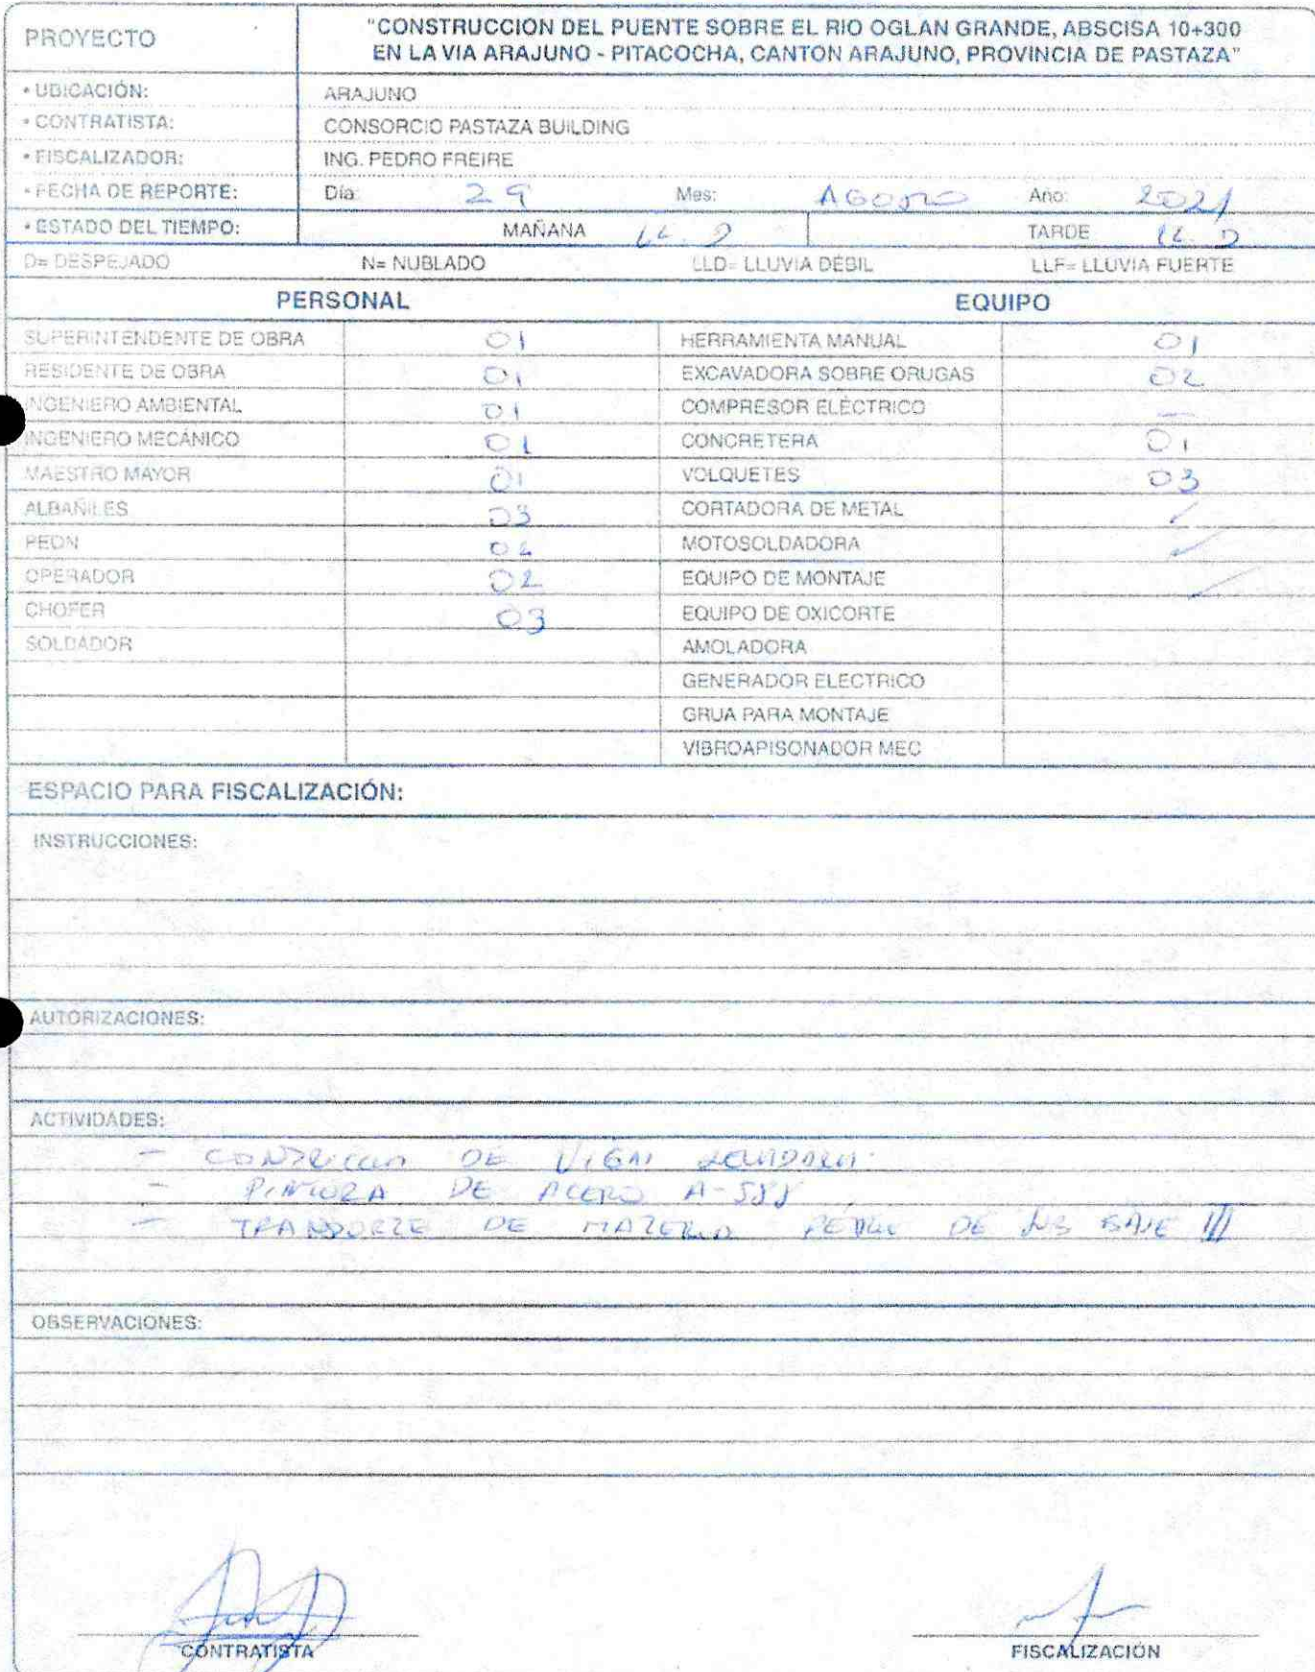 PROYECTO
"CONSTRUCCION DEL PUENTE SOBRE EL RIO OGLAN GRANDE, ABSCISA 10+300
EN LA VIA ARAJUNO - PITACOCHA, CANTON ARAJUNO, PROVINCIA DE PASTAZA"
• UBICACIÓN: ARAJUNO
• CONTRATISTA: CONSORCIO PASTAZA BUILDING
• FISCALIZADOR: ING. PEDRO FREIRE
• FECHA DE REPORTE: Día: 29 Mes: AGOSTO Año: 2021
• ESTADO DEL TIEMPO: MAÑANA LL. D TARDE LL. D
D= DESPEJADO N= NUBLADO LLD= LLUVIA DÉBIL LLF= LLUVIA FUERTE
PERSONAL EQUIPO
SUPERINTENDENTE DE OBRA 01 HERRAMIENTA MANUAL 01
RESIDENTE DE OBRA 01 EXCAVADORA SOBRE ORUGAS 02
INGENIERO AMBIENTAL 01 COMPRESOR ELÉCTRICO —
INGENIERO MECÁNICO 01 CONCRETERA 01
MAESTRO MAYOR 01 VOLQUETES 03
ALBAÑILES 03 CORTADORA DE METAL ✓
PEON MOTOSOLDADORA ✓
OPERADOR 02 EQUIPO DE MONTAJE ✓
CHOFER 03 EQUIPO DE OXICORTE
SOLDADOR AMOLADORA
GENERADOR ELECTRICO
GRUA PARA MONTAJE
VIBROAPISONADOR MEC
ESPACIO PARA FISCALIZACIÓN:
INSTRUCCIONES:
AUTORIZACIONES:
ACTIVIDADES:
- DE VIGAS
- PINTURA DE ACERO A-588
- TRANSPORTE DE MATERIAL DE BASE III
OBSERVACIONES:
CONTRATISTA FISCALIZACIÓN